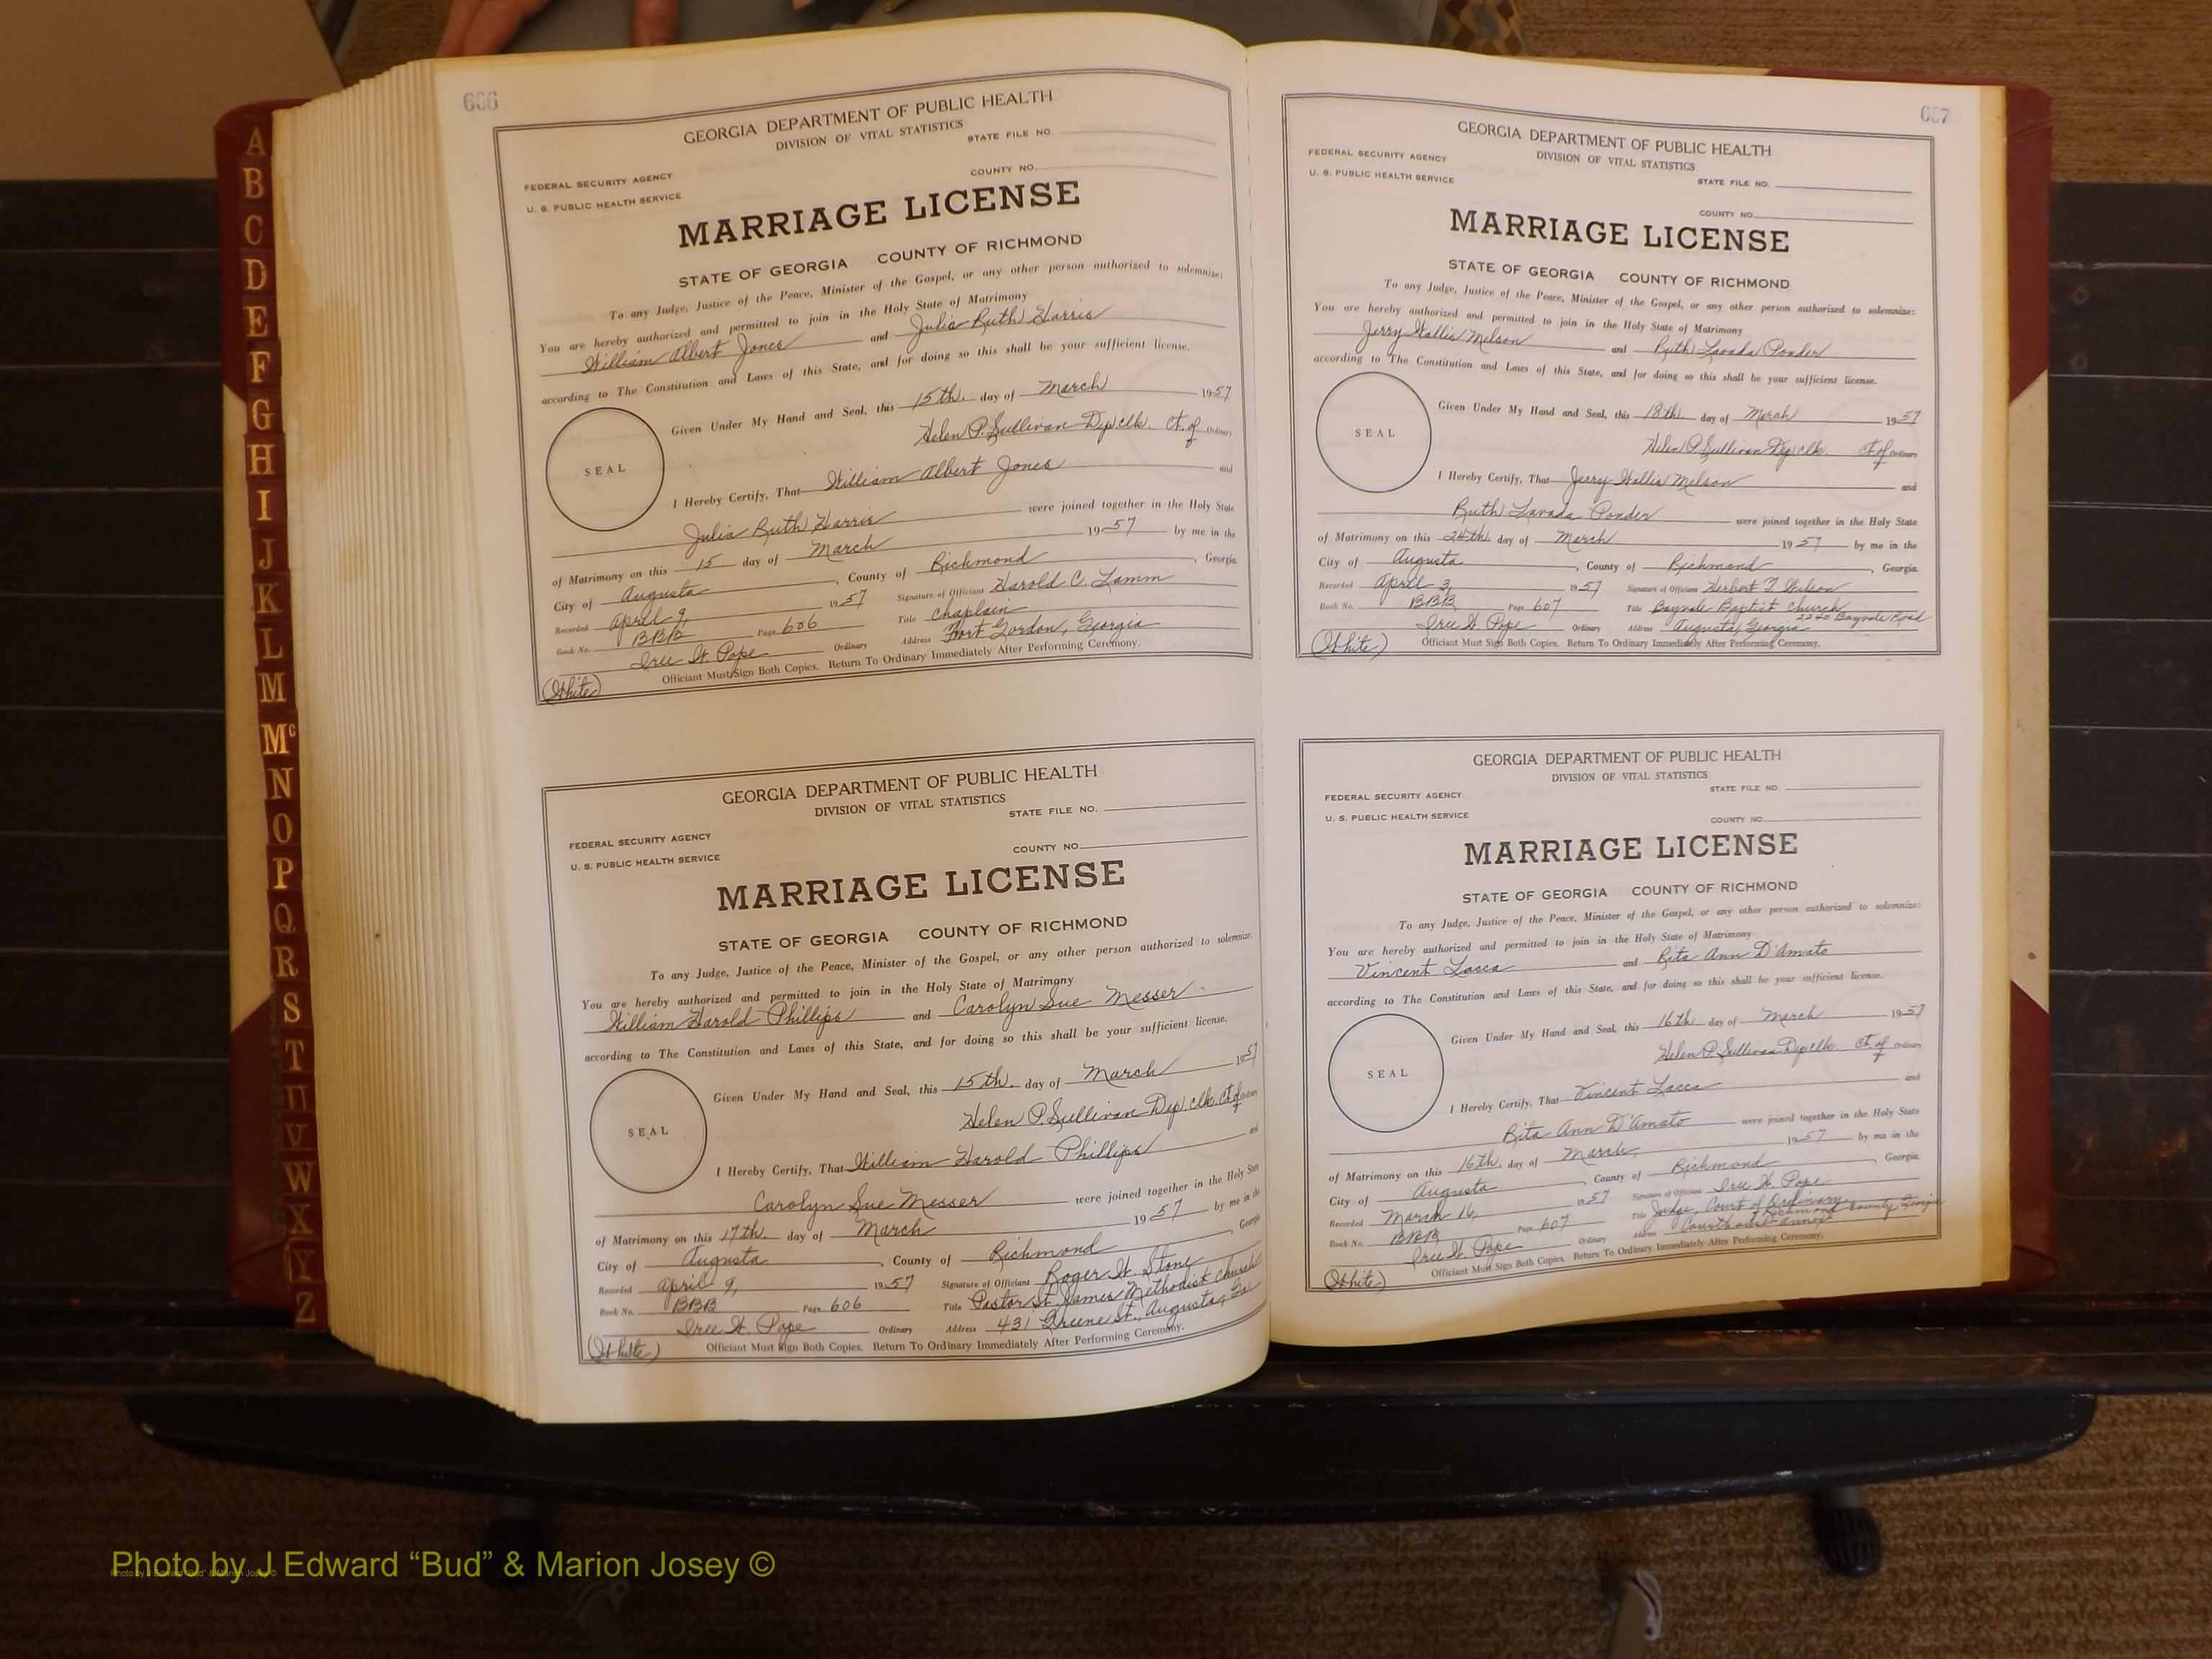 A
B
C
D
E
F
G
H
I
J
K
L
M
Mc
N
O
P
Q
R
S
T
U
V
W
X
Y
Z
606
GEORGIA DEPARTMENT OF PUBLIC HEALTH
DIVISION OF VITAL STATISTICS
STATE FILE NO.
FEDERAL SECURITY AGENCY
COUNTY NO.
U. S. PUBLIC HEALTH SERVICE
MARRIAGE LICENSE
STATE OF GEORGIA COUNTY OF RICHMOND
To any Judge, Justice of the Peace, Minister of the Gospel, or any other person authorized to solemnize:
You are hereby authorized and permitted to join in the Holy State of Matrimony
William Albert Jones and Julia Ruth Harris
according to The Constitution and Laws of this State, and for doing so this shall be your sufficient license.
Given Under My Hand and Seal, this 15th. day of March 1957
Helen P. Sullivan Dep clk. Ct. of Ordinary
SEAL
I Hereby Certify, That William Albert Jones and
Julia Ruth Harris were joined together in the Holy State
of Matrimony on this 15 day of March 1957 by me in the
City of Augusta, County of Richmond, Georgia
Recorded April 9, 1957 Signature of Officiant Harold C. Lamm
Book No. BBB Page 606 Title Chaplain
Iree W. Pope Ordinary Address Fort Gordon, Georgia
(White) Officiant Must Sign Both Copies. Return To Ordinary Immediately After Performing Ceremony.
GEORGIA DEPARTMENT OF PUBLIC HEALTH
DIVISION OF VITAL STATISTICS
STATE FILE NO.
FEDERAL SECURITY AGENCY
COUNTY NO.
U. S. PUBLIC HEALTH SERVICE
MARRIAGE LICENSE
STATE OF GEORGIA COUNTY OF RICHMOND
To any Judge, Justice of the Peace, Minister of the Gospel, or any other person authorized to solemnize:
You are hereby authorized and permitted to join in the Holy State of Matrimony
William Harold Phillips and Carolyn Sue Messer
according to The Constitution and Laws of this State, and for doing so this shall be your sufficient license.
Given Under My Hand and Seal, this 15th. day of March 1957
Helen P. Sullivan Dep. clk. Ct. of Ordinary
SEAL
I Hereby Certify, That William Harold Phillips and
Carolyn Sue Messer were joined together in the Holy State
of Matrimony on this 17th. day of March 1957 by me in the
City of Augusta, County of Richmond, Georgia
Recorded April 9, 1957 Signature of Officiant Roger W. Stone
Book No. BBB Page 606 Title Pastor St. James Methodist Church
Iree W. Pope Ordinary Address 431 Greene St., Augusta, Ga
(White) Officiant Must Sign Both Copies. Return To Ordinary Immediately After Performing Ceremony.
607
GEORGIA DEPARTMENT OF PUBLIC HEALTH
FEDERAL SECURITY AGENCY
DIVISION OF VITAL STATISTICS
U. S. PUBLIC HEALTH SERVICE
STATE FILE NO.
COUNTY NO.
MARRIAGE LICENSE
STATE OF GEORGIA COUNTY OF RICHMOND
To any Judge, Justice of the Peace, Minister of the Gospel, or any other person authorized to solemnize:
You are hereby authorized and permitted to join in the Holy State of Matrimony
Jerry Wallis Melson and Ruth Lavada Ponder
according to The Constitution and Laws of this State, and for doing so this shall be your sufficient license.
Given Under My Hand and Seal, this 18th. day of March 1957
Helen P. Sullivan Dep. clk. Ct of Ordinary
SEAL
I Hereby Certify, That Jerry Wallis Melson and
Ruth Lavada Ponder were joined together in the Holy State
of Matrimony on this 24th. day of March 1957 by me in the
City of Augusta, County of Richmond, Georgia
Recorded April 3, 1957 Signature of Officiant Herbert Wilson
Book No. BBB Page 607 Title Bayvale Baptist Church
2240 Bayvale Road
Iree W. Pope Ordinary Address Augusta, Georgia
(White) Officiant Must Sign Both Copies. Return To Ordinary Immediately After Performing Ceremony.
GEORGIA DEPARTMENT OF PUBLIC HEALTH
DIVISION OF VITAL STATISTICS
STATE FILE NO.
FEDERAL SECURITY AGENCY
U. S. PUBLIC HEALTH SERVICE
COUNTY NO.
MARRIAGE LICENSE
STATE OF GEORGIA COUNTY OF RICHMOND
To any Judge, Justice of the Peace, Minister of the Gospel, or any other person authorized to solemnize:
You are hereby authorized and permitted to join in the Holy State of Matrimony
Vincent and Rita Ann D'Amato
according to The Constitution and Laws of this State, and for doing so this shall be your sufficient license.
Given Under My Hand and Seal, this 16th day of March 1957
Helen P. Sullivan Dep clk. Ct. of Ordinary
SEAL
I Hereby Certify, That Vincent and
Rita Ann D'Amato were joined together in the Holy State
of Matrimony on this 16th. day of March, 1957 by me in the
City of Augusta, County of Richmond, Georgia
Recorded March 16, 1957 Signature of Officiant Iree W. Pope
Book No. BBB Page 607 Title Judge, Court of Ordinary
Richmond County, Georgia
Iree W. Pope Ordinary Address Courthouse Annex
(White) Officiant Must Sign Both Copies. Return To Ordinary Immediately After Performing Ceremony.
Photo by J Edward “Bud” & Marion Josey ©
Photo by J Edward “Bud” & Marion Josey ©